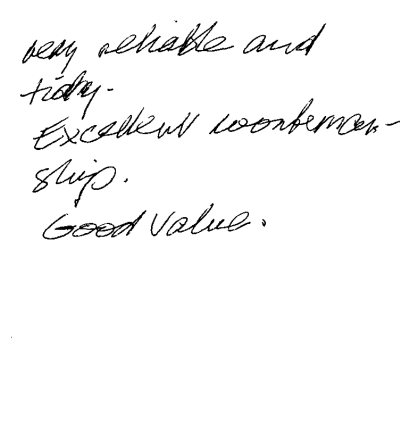 very reliable and
tidy.
Excellent workman-
ship.
Good Value.